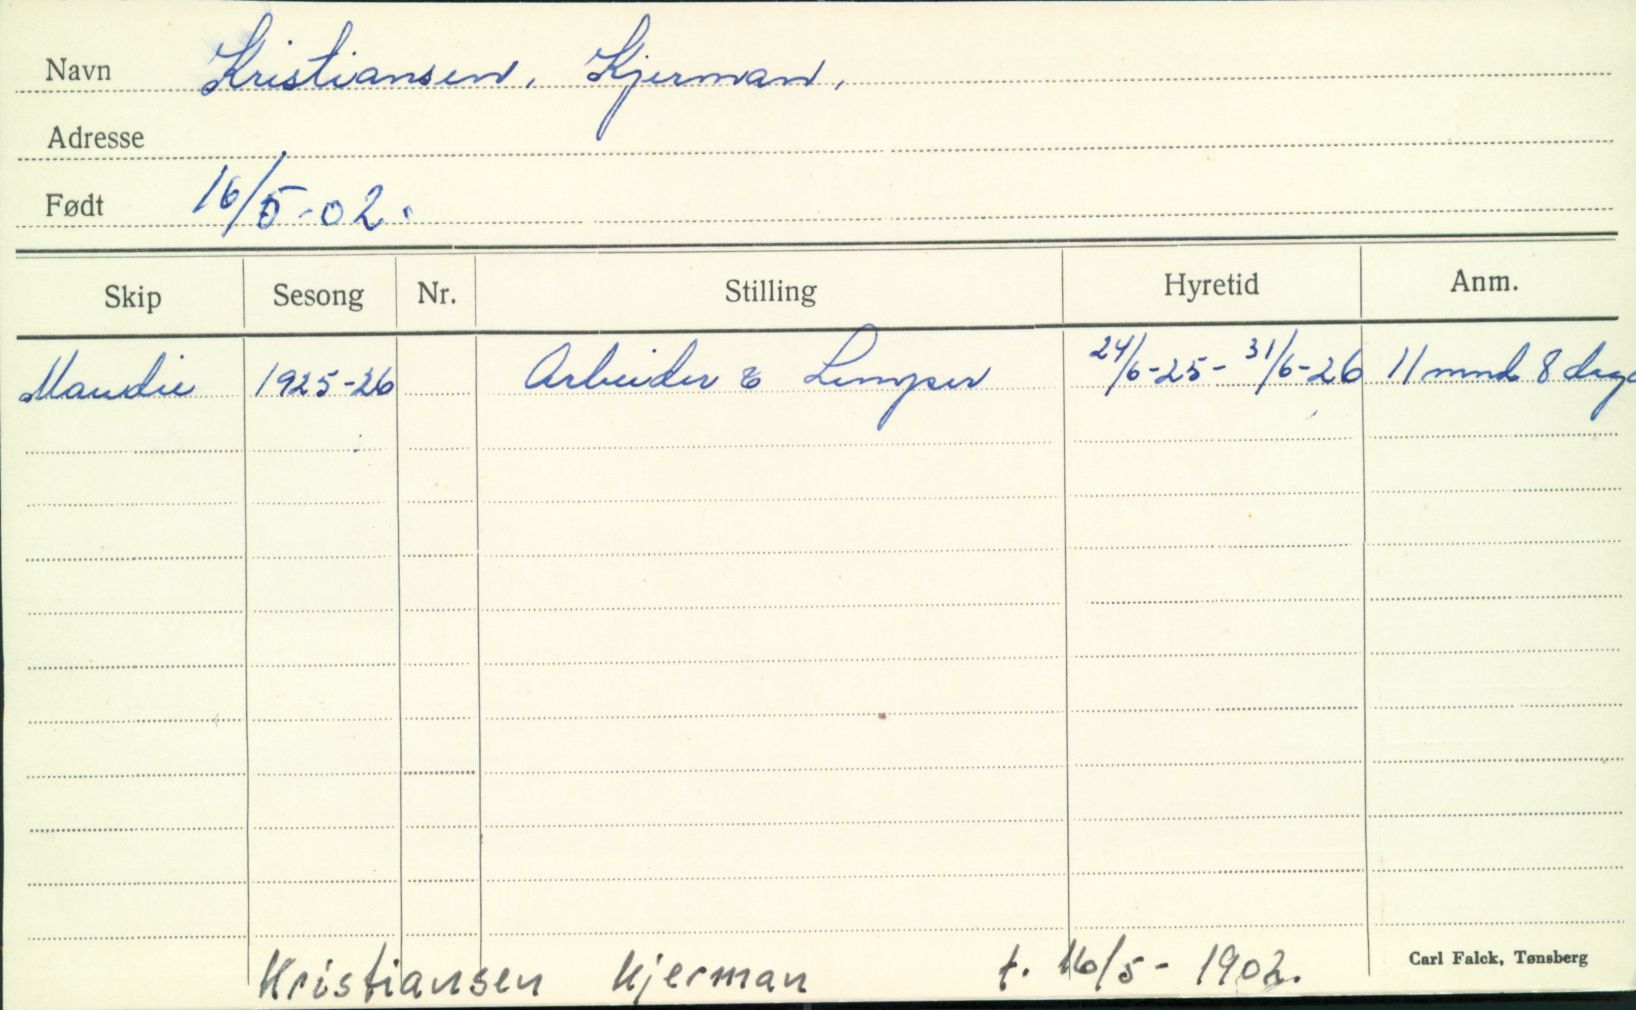 Navn Kristiansen, Kjerman,
Adresse
Født 16/5-02.
Skip Sesong Nr. Stilling Hyretid Anm.
Maudie 1925-26 Arbeider & Lemper 24/6-25-31/6-26 11 mnd 8 dag
Carl Falck, Tønsberg
Kristiansen Kjerman f. 16/5-1902.